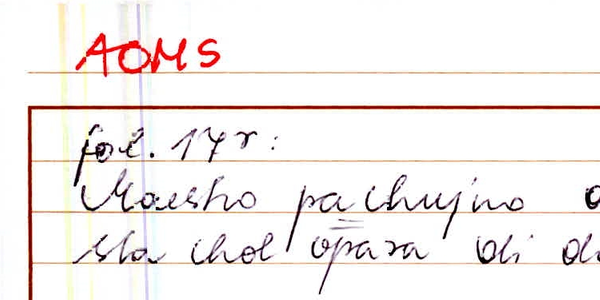 AOMS
fol. 17r:
Maestro pachujno
sta chol opara di